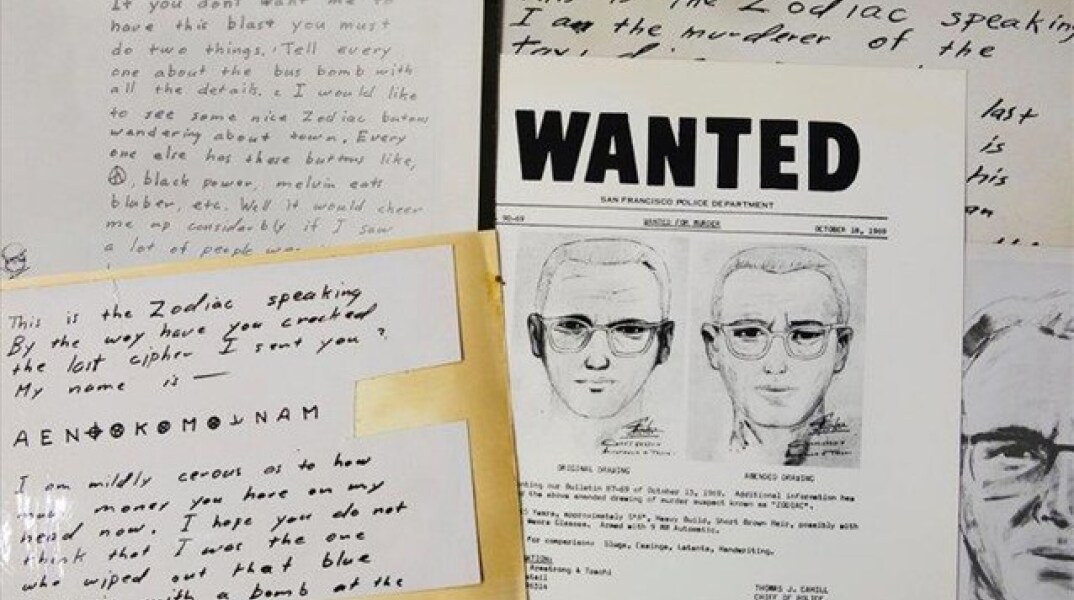 If you dont want me to
have this blast you must
do two things. Tell every
one about the bus bomb with
all the details. I would like
to see some nice Zodiac butons
wandering about town. Every
one else has these buttons like,
☮, black power, melvin eats
bluber, etc. Well it would cheer
me up considerbly if I saw
a lot of people
This is the Zodiac speaking
By the way have you cracked
the last cipher I sent you?
My name is —
A E N ⌖ ⊗ K ⊗ M ⊗ ⅃ N A M
I am mildly cerous as to how
money you have on my
head now. I hope you do not
think that I was the one
who wiped out that blue
with a bomb at the
This is the Zodiac speaking
I am the murderer of the
last
is
his
WANTED
SAN FRANCISCO POLICE DEPARTMENT
90-69 WANTED FOR MURDER OCTOBER 18, 1969
ORIGINAL DRAWING AMENDED DRAWING
our Bulletin 87-69 of October 13, 1969. Additional information has
the above amended drawing of murder suspect known as "ZODIAC".
Years, approximately 5'8", Heavy Build, Short Brown Hair, possibly with
Wears Glasses. Armed with 9 MM Automatic.
for comparison: Slugs, Casings, Latents, Handwriting.
Armstrong & Toschi
THOMAS J. CAHILL
CHIEF OF POLICE